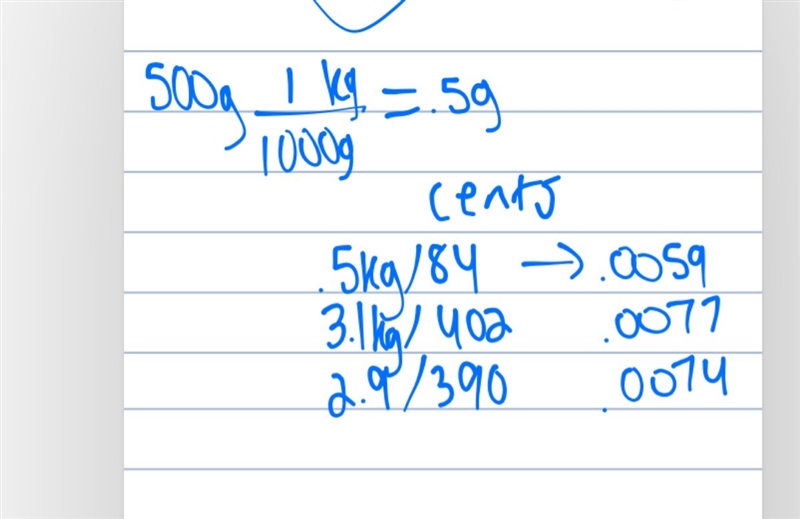 500g 1 kg/1000g = .5g
cents
.5kg/84 → .0059
3.1kg/402 .0077
2.9/390 .0074